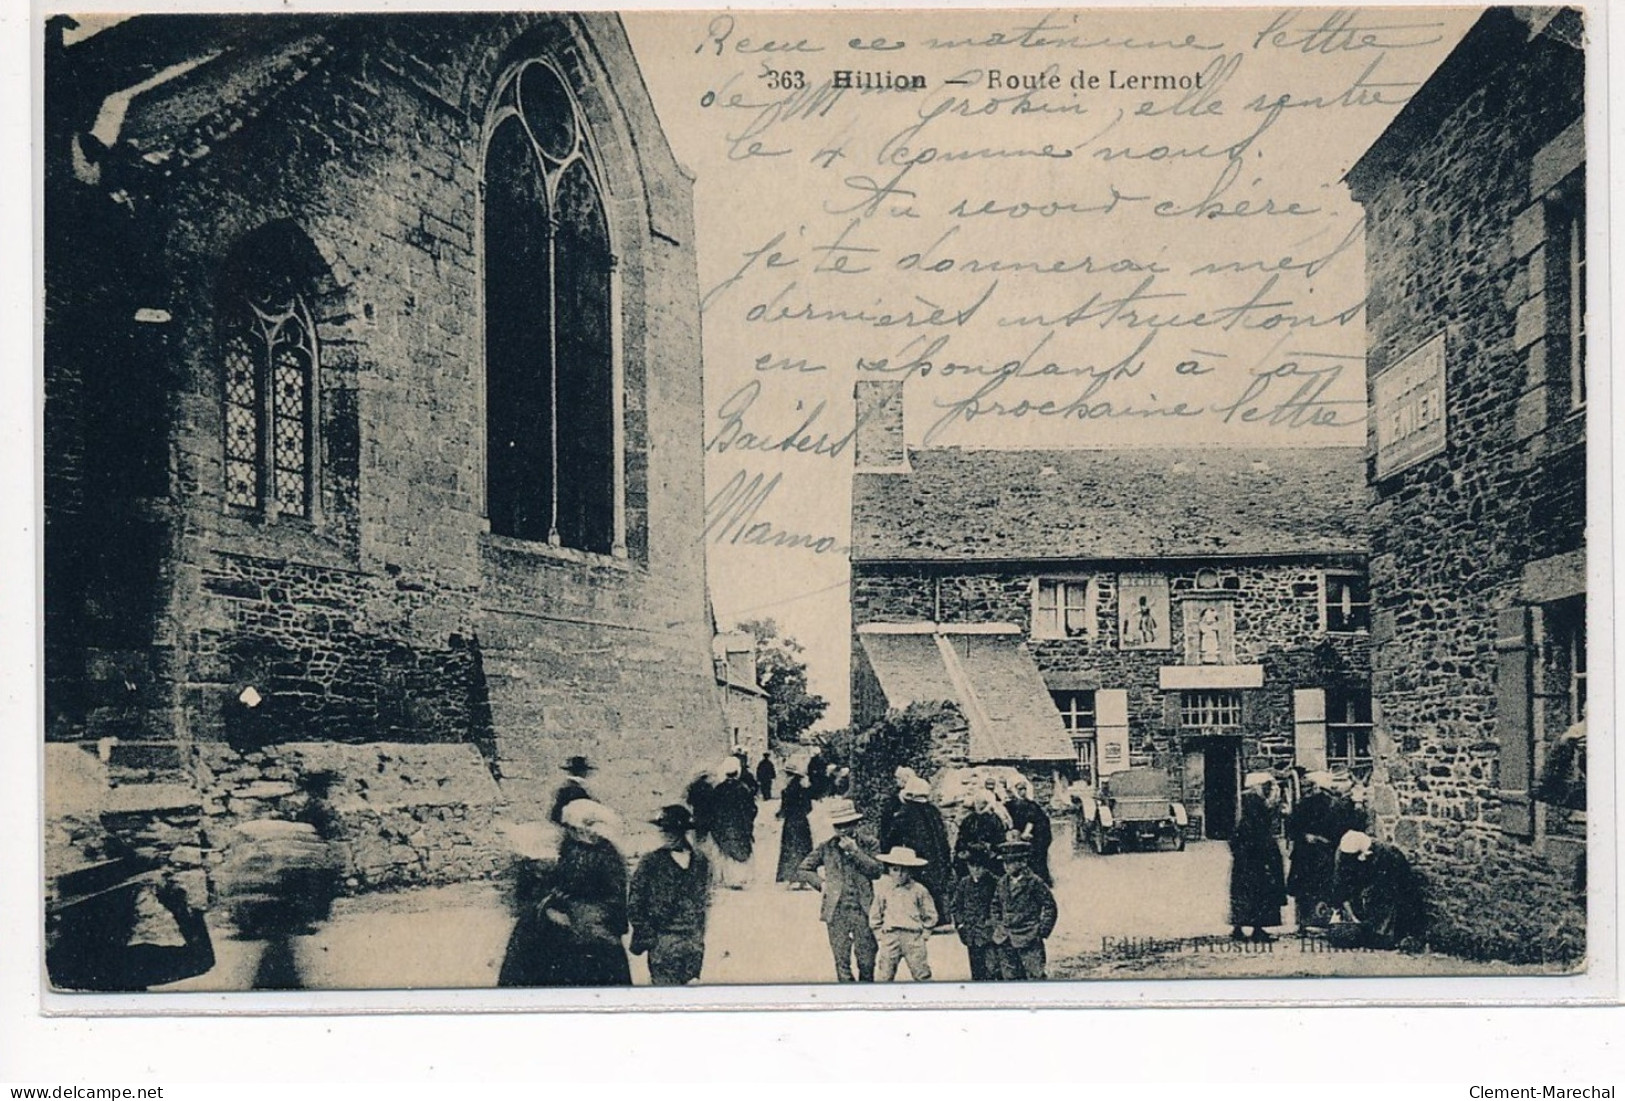 Reçu ce matin une lettre
363 Hillion — Route de Lermot
de Mme Grobin, elle rentre
le 4 comme nous.
Au revoir chéri.
je te donnerai mes
dernières instructions
en répondant à ta
prochaine lettre
Baisers
Maman
MENIER
MENIER
Edition Frostin - Hillion
Clement-Marechal